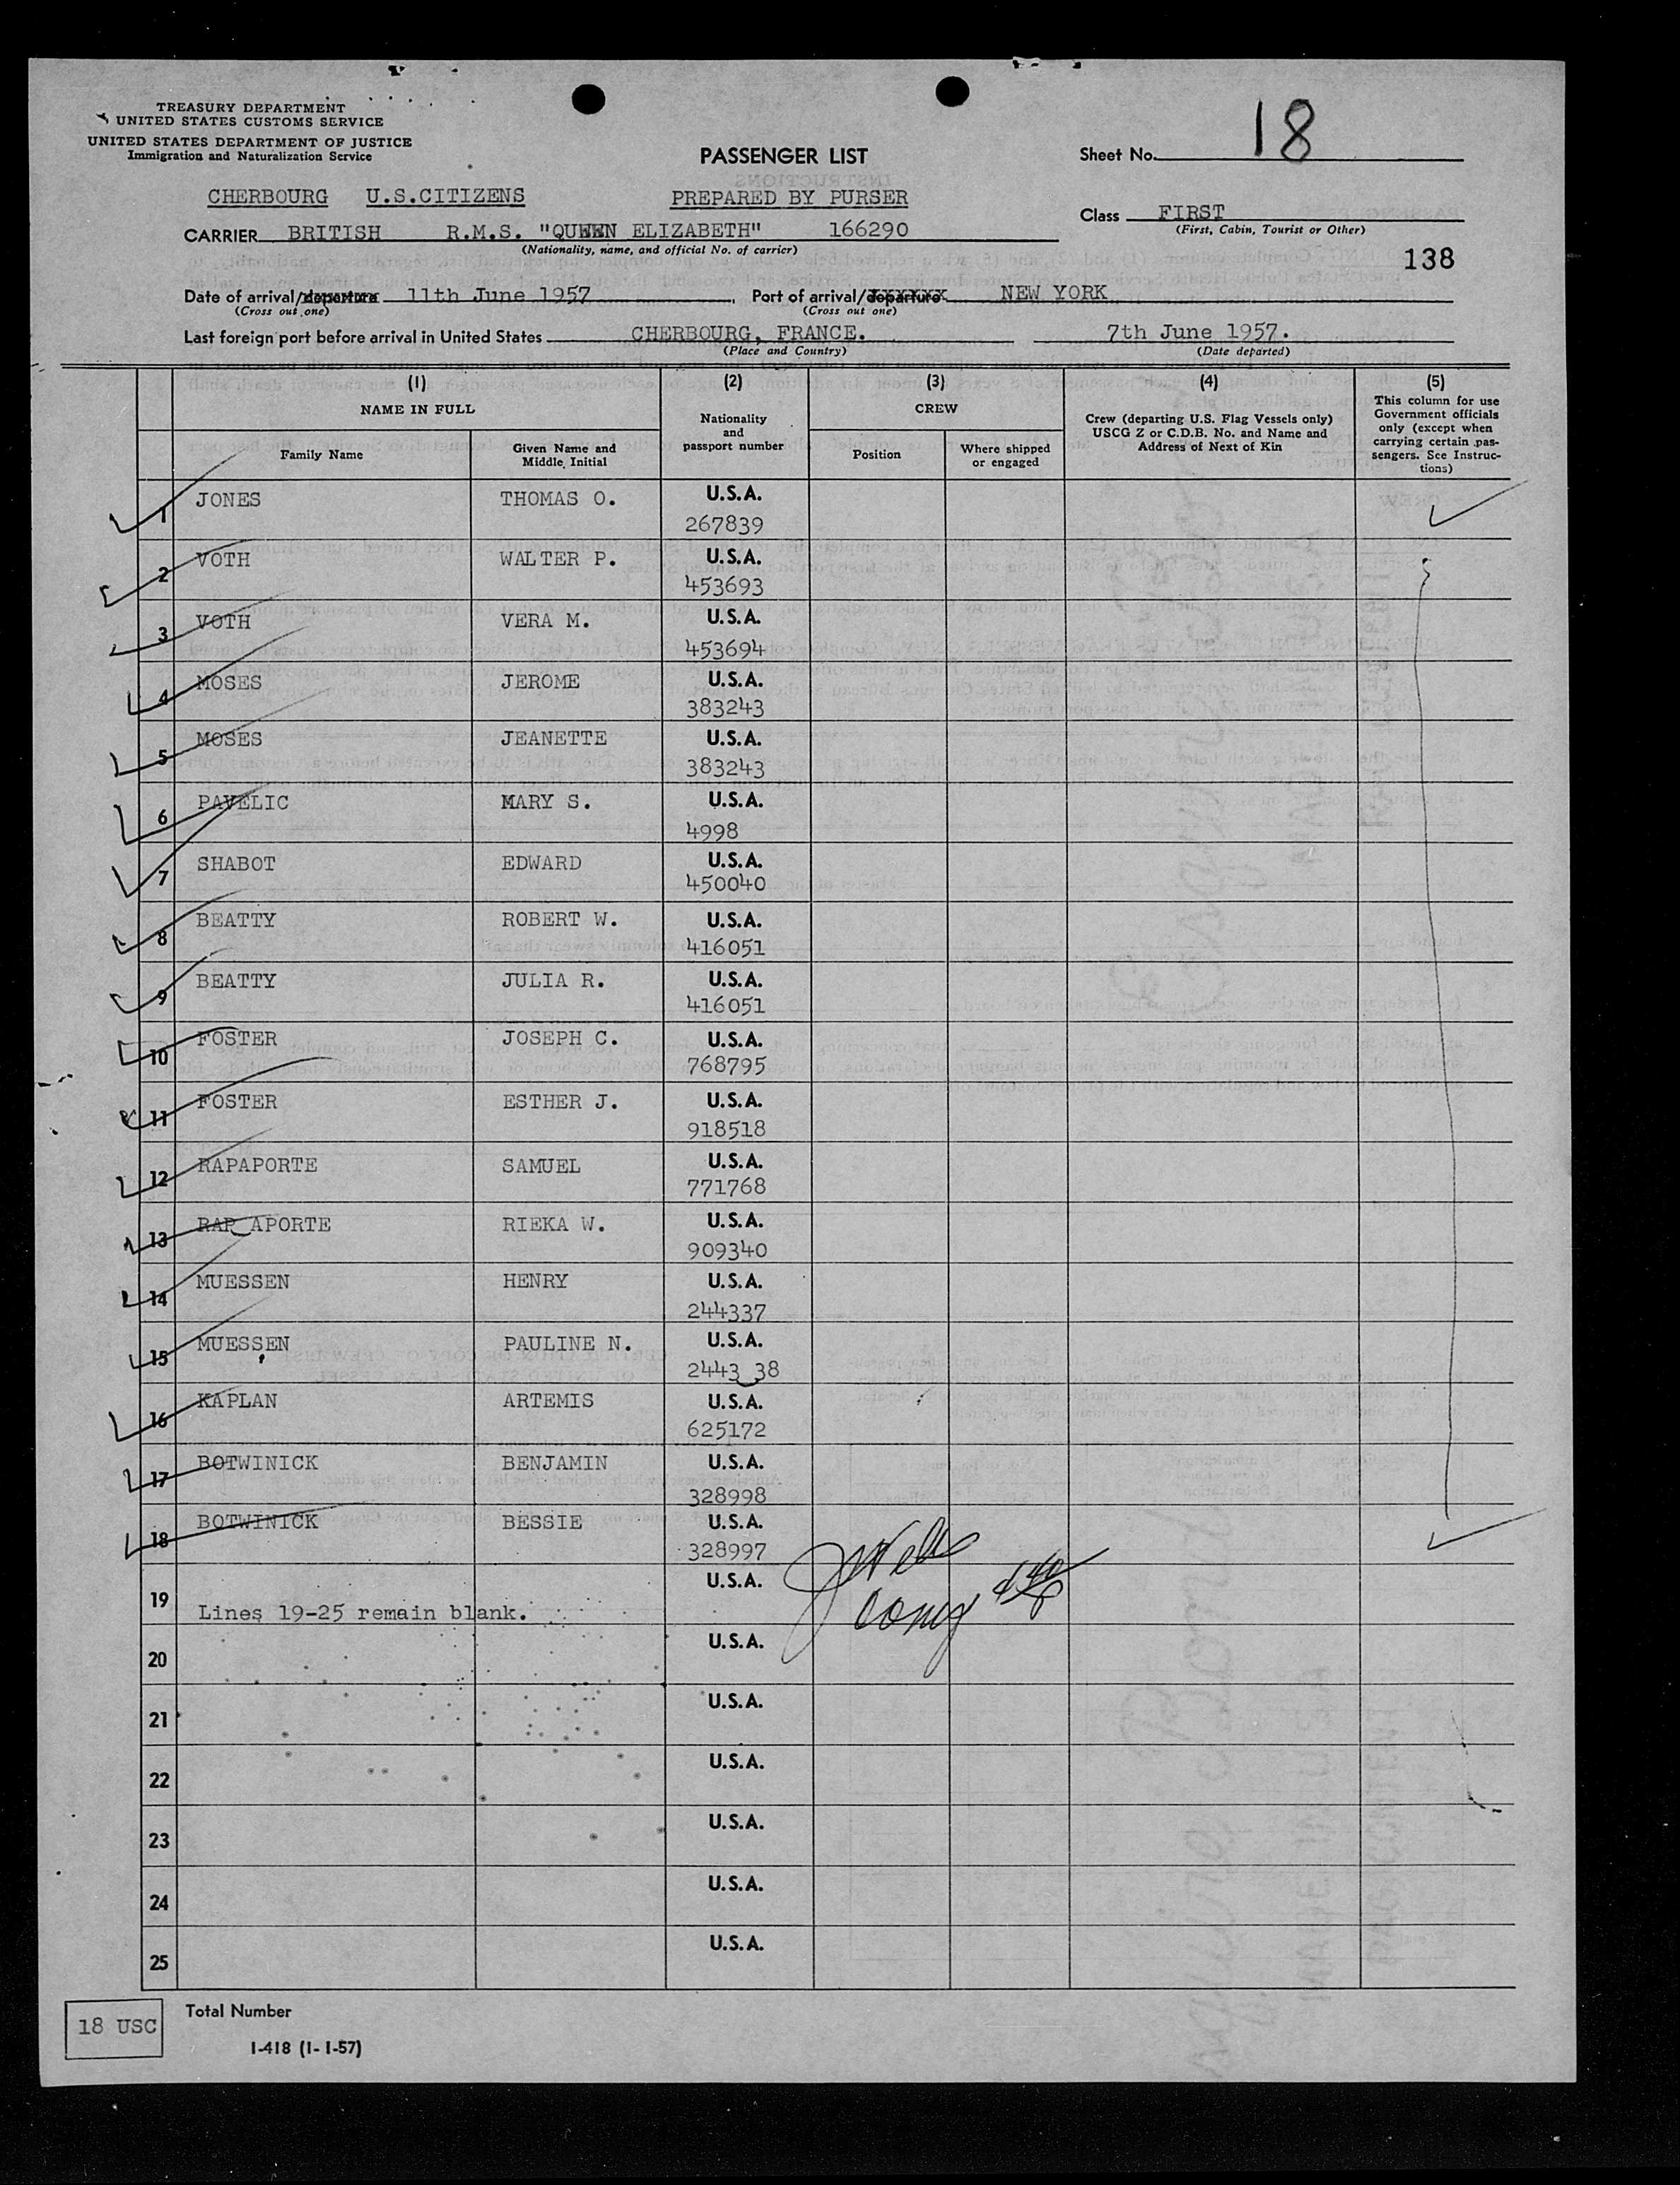 TREASURY DEPARTMENT
UNITED STATES CUSTOMS SERVICE
UNITED STATES DEPARTMENT OF JUSTICE
Immigration and Naturalization Service
PASSENGER LIST
Sheet No. 18
CHERBOURG U.S.CITIZENS
PREPARED BY PURSER
Class FIRST
(First, Cabin, Tourist or Other)
CARRIER BRITISH R.M.S. "QUEEN ELIZABETH" 166290
(Nationality, name, and official No. of carrier)
138
Date of arrival/departure 11th June 1957, Port of arrival/departure NEW YORK
(Cross out one) (Cross out one)
Last foreign port before arrival in United States CHERBOURG, FRANCE. 7th June 1957.
(Place and Country) (Date departed)
(1) (2) (3) (4) (5)
NAME IN FULL
Family Name
Given Name and Middle Initial
Nationality and passport number
CREW
Position
Where shipped or engaged
Crew (departing U.S. Flag Vessels only)
USCG Z or C.D.B. No. and Name and
Address of Next of Kin
This column for use
Government officials
only (except when
carrying certain pas-
sengers. See Instruc-
tions)
1 JONES THOMAS O. U.S.A. 267839
2 VOTH WALTER P. U.S.A. 453693
3 VOTH VERA M. U.S.A. 453694
4 MOSES JEROME U.S.A. 383243
5 MOSES JEANETTE U.S.A. 383243
6 PAVELIC MARY S. U.S.A. 4998
7 SHABOT EDWARD U.S.A. 450040
8 BEATTY ROBERT W. U.S.A. 416051
9 BEATTY JULIA R. U.S.A. 416051
10 FOSTER JOSEPH C. U.S.A. 768795
11 FOSTER ESTHER J. U.S.A. 918518
12 RAPAPORTE SAMUEL U.S.A. 771768
13 RAP APORTE RIEKA W. U.S.A. 909340
14 MUESSEN HENRY U.S.A. 244337
15 MUESSEN PAULINE N. U.S.A. 2443 38
16 KAPLAN ARTEMIS U.S.A. 625172
17 BOTWINICK BENJAMIN U.S.A. 328998
18 BOTWINICK BESSIE U.S.A. 328997
19 Lines 19-25 remain blank. U.S.A.
20 U.S.A.
21 U.S.A.
22 U.S.A.
23 U.S.A.
24 U.S.A.
25 U.S.A.
18 USC
Total Number
I-418 (1-1-57)